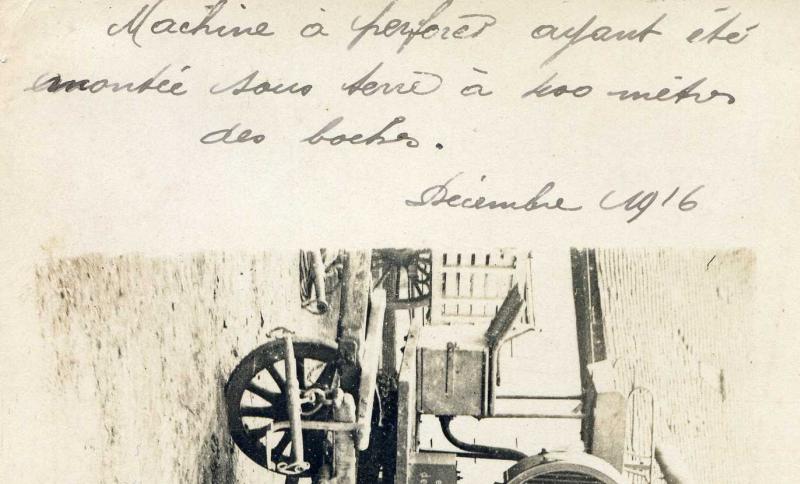 Machine à perforer ayant été
montée sous terre à 400 mètres
des boches.
Décembre 1916